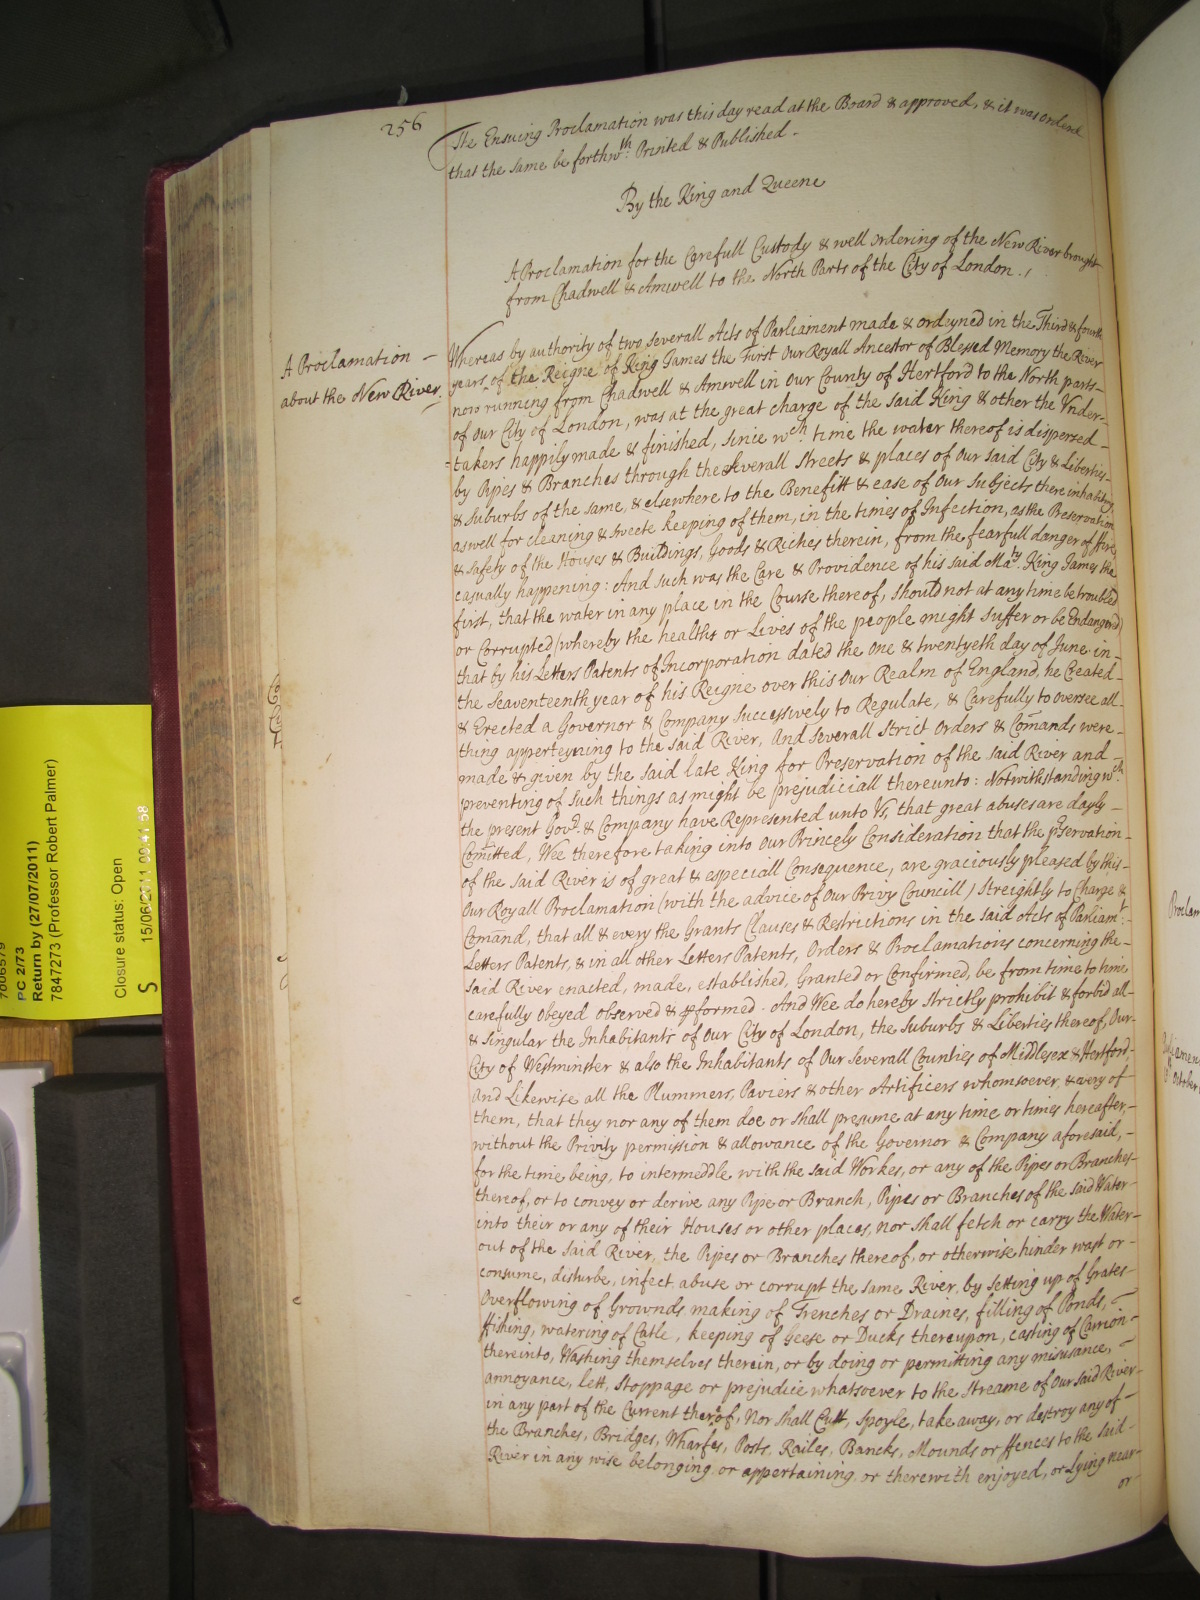 256
The Ensuing Proclamation was this day read at the Board & approved, & it was ordered
that the same be forthwth. Printed & Published -
By the King and Queene
A Proclamation for the Carefull Custody & well ordering of the New River brought
from Chadwell & Amwell to the North Parts of the City of London./
A Proclamation -
about the New River.
Whereas by authority of two severall Acts of Parliament made & ordeyned in the Third & fourth
years, of the Reigne of King James the First Our Royall Ancestor of Blessed Memory the River
now running from Chadwell & Amwell in Our County of Hertford to the North parts -
of our City of London, was at the great charge of the said King & other the Vnder-
=takers happily made & finished, since wch. time the water thereof is dispersed -
by Pipes & Branches through the Severall Streets & places of Our said City & Liberties -
& suburbs of the same, & elsewhere to the Benefitt & ease of Our Subjects there inhabiting
aswell for cleaning & sweete keeping of them, in the times of Infection, as the Preservation
& safety of the Houses & Buildings, Goods & Riches therein, from the fearfull danger of ffire
casually happening: And such was the Care & Providence of his said Mats. King James the
first, that the water in any place in the Course thereof, should not at any time be troubled
or Corrupted (whereby the healths or Lives of the people might suffer or be Endangered)
that by his Letters Patents of Incorporation dated the one & twentyeth day of June in -
the Seaventeenth year of his Reigne over this Our Realm of England, he Created -
& Erected a Governor & Company Successively to Regulate, & Carefully to oversee all -
thing apperteyning to the said River, And severall Strict Orders & Com̄ands were -
made & given by the said late King for Preservation of the said River and -
preventing of Such things as might be prejudiciall thereunto: Notwithstanding wch.
the present Govr. & Company have Represented unto Vs, that great abuses are dayly -
Com̄itted, Wee therefore taking into our Princely Consideration that the pservation -
of the said River is of great & especiall Consequence, are graciously pleased by this -
Our Royall Proclamation (with the advice of Our Privy Councill) Streightly to Charge &
Com̄and, that all & every the Grants Clauses & Restrictions in the said Acts of Parliamt: -
Letters Patents, & in all other Letters Patents, Orders & Proclamations concerning the -
said River enacted, made, established, Granted or Confirmed, be from time to time
carefully obeyed observed & pformed. And Wee do hereby strictly prohibit & forbid all -
& singular the Inhabitants of Our City of London, the Suburbs & Liberties thereof, Our -
City of Westminster & also the Inhabitants of Our Severall Counties of Middlesex & Hertford -
And Likewise all the Plummers, Paviers & other Artificers whomsoever, & every of
them, that they nor any of them doe or shall presume at any time or times hereafter, -
without the Privity permission & allowance of the Governor & Company aforesaid, -
for the time being, to intermeddle with the said Workes, or any of the Pipes or Branches -
thereof, or to convey or derive any Pipe or Branch, Pipes or Branches of the said Water -
into their or any of their Houses or other places, nor shall fetch or carry the Water -
out of the said River, the Pipes or Branches thereof, or otherwise hinder wast or -
consume, disturbe, infect, abuse or corrupt the same River, by setting up of Grates -
Overflowing of Grownds making of Trenches or Draines, filling of Ponds, -
ffishing, watering of Catle, keeping of Geese or Ducks thereupon, casting of Carrion -
thereinto, Washing themselves therein, or by doing or permitting any misusance, -
annoyance, lett, stoppage or prejudice whatsoever to the streame of our said River -
in any part of the Current therof, Nor shall Cutt, spoyle, take away, or destroy any of -
the Branches, Bridges, Wharfes, Posts, Railes, Bancks, Mounds or ffences to the said -
River in any wise belonging or appertaining or therewith enjoyed, or Lying near -
or -
PC 2/73
Return by (27/07/2011)
7847273 (Professor Robert Palmer)
Closure status: Open
S
15/06/2011 09:41:58